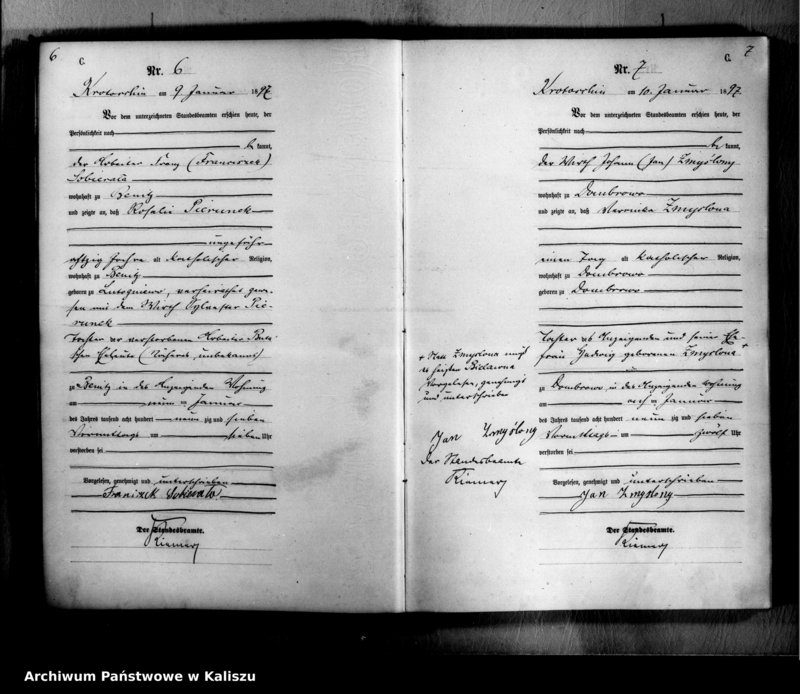 6
C.
Nr. 6
Krotoschin am 9. Januar 1897
Vor dem unterzeichneten Standesbeamten erschien heute, der
Persönlichkeit nach
bekannt,
der Arbeiter Franz (Franciszek)
Sobierala
wohnhaft zu Benitz
und zeigte an, daß Rosalie Pierunek
ungefähr
achtzig Jahre alt katholischer Religion,
wohnhaft zu Benitz
geboren zu Lutogniewo, verheirathet gewe-
sen mit dem Wirth Sylvester Pie-
runek
Tochter der verstorbenen Arbeiter
Eheleute (Näheres unbekannt)
zu Benitz in des Anzeigenden Wohnung
am neun ten Januar
des Jahres tausend acht hundert neun zig und sieben
Vormittags um sieben Uhr
verstorben sei
Vorgelesen, genehmigt und unterschrieben
Franciszek Sobierala
Der Standesbeamte.
7
C.
Nr. 7
Krotoschin am 10. Januar 1897
Vor dem unterzeichneten Standesbeamten erschien heute, der
Persönlichkeit nach
bekannt,
der Wirth Johann (Jan) Zmyślony
wohnhaft zu Dombrowo
und zeigte an, daß Veronika Zmyslona
einen Tag alt katholischer Religion,
wohnhaft zu Dombrowo
geboren zu Dombrowo
Tochter des Anzeigenden und seiner Ehe-
frau Hedwig geborenen Zmyslona +
zu Dombrowo, in des Anzeigenden Wohnung
am ten Januar
des Jahres tausend acht hundert neun zig und sieben
Vormittags um zwölf Uhr
verstorben sei
Vorgelesen, genehmigt und unterschrieben
Jan Zmyslony
Der Standesbeamte.
+ Statt Zmyslona muß
es heißen
Vorgelesen, genehmigt
und unterschrieben
Jan Zmyślony
Der Standesbeamte
Archiwum Państwowe w Kaliszu